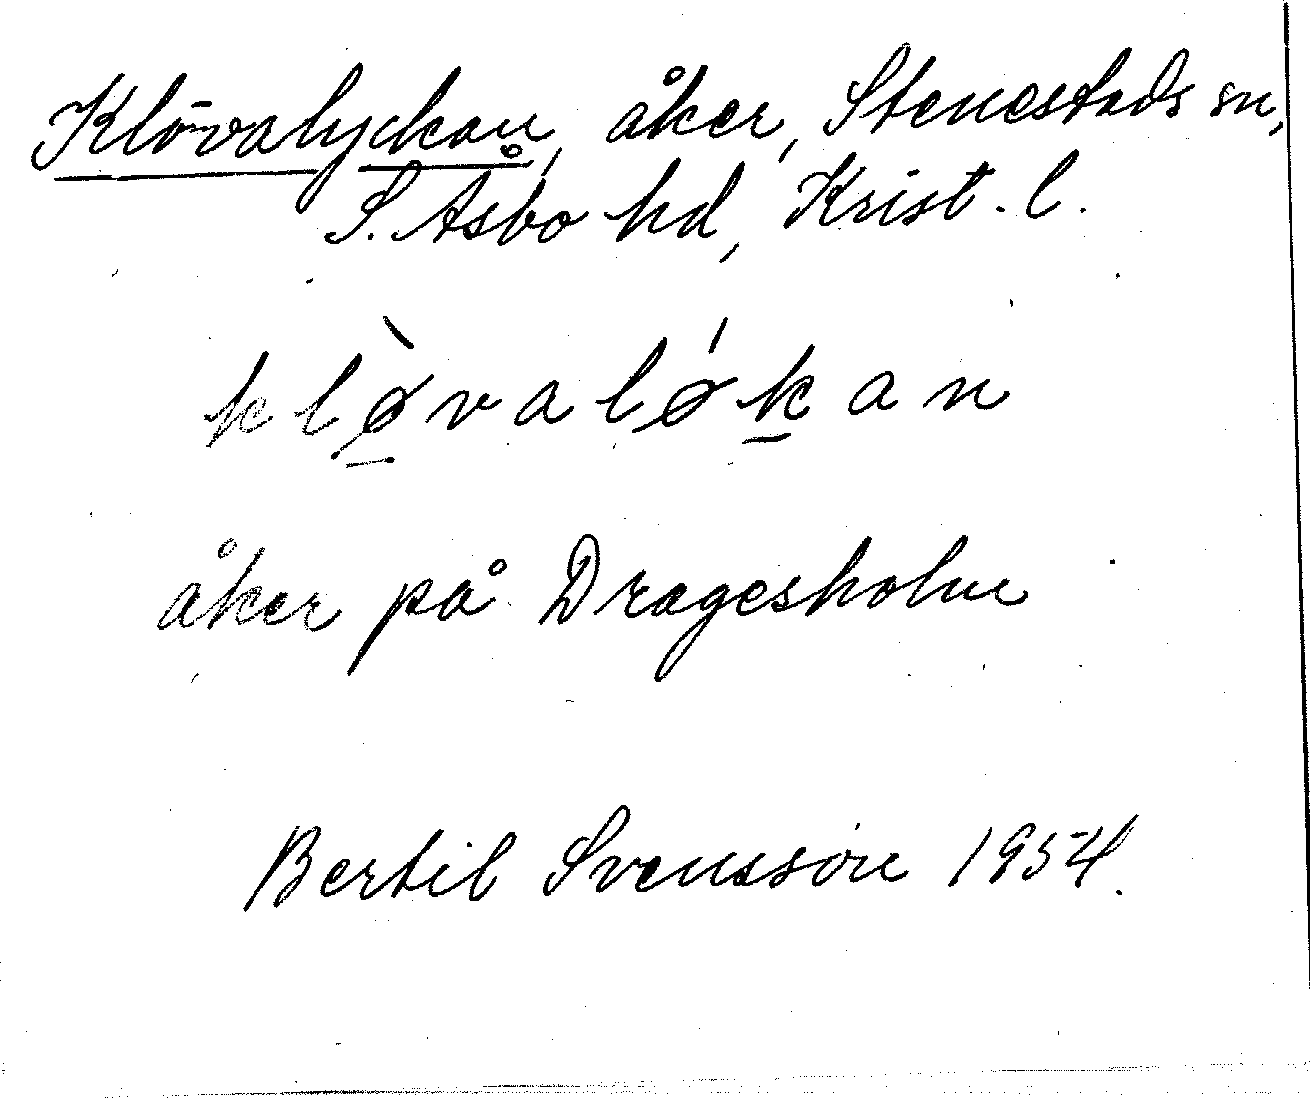 Klövalyckan, åker, Stenestads sn,
S. Åsbo hd, Krist. l.
klø̀valǿkan
åker på Dragesholm
Bertil Svensson 1954.